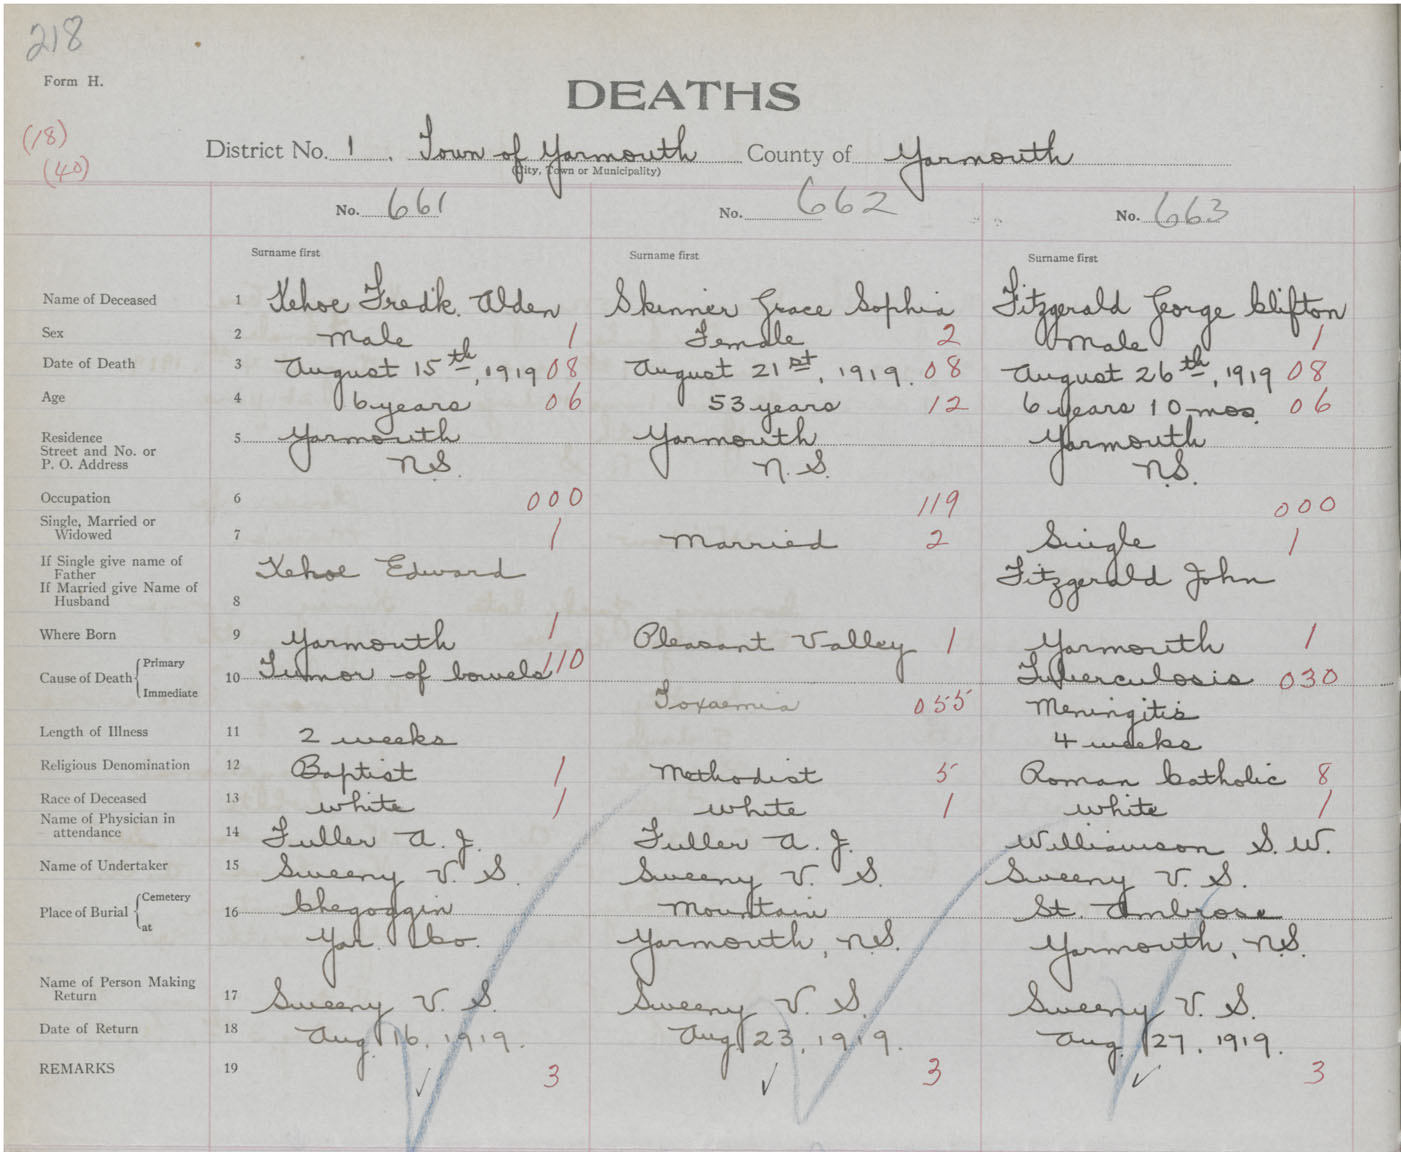 218
Form H.
DEATHS
(18)
(40)
District No. 1. Town of Yarmouth County of Yarmouth
(City, Town or Municipality)
No. 661 No. 662 No. 663
Surname first Surname first Surname first
Name of Deceased 1 Kehoe Fredk. Alden Skinner Grace Sophia Fitzgerald George Clifton
Sex 2 Male 1 Female 2 Male 1
Date of Death 3 August 15th, 1919 08 August 21st, 1919. 08 August 26th, 1919 08
Age 4 6 years 06 53 years 12 6 years 10 mos. 06
Residence 5 Yarmouth Yarmouth Yarmouth
Street and No. or
P. O. Address N.S. N.S. N.S.
Occupation 6 000 119 000
Single, Married or
Widowed 7 1 Married 2 Single 1
If Single give name of
Father Kehoe Edward Fitzgerald John
If Married give Name of
Husband 8
Where Born 9 Yarmouth 1 Pleasant Valley 1 Yarmouth 1
Cause of Death Primary 10 Tumor of bowels 110 Tuberculosis 030
Immediate Toxaemia 055 Meningitis
Length of Illness 11 2 weeks 4 weeks
Religious Denomination 12 Baptist 1 Methodist 5 Roman Catholic 8
Race of Deceased 13 White 1 White 1 White 1
Name of Physician in
attendance 14 Fuller A. J. Fuller A. J. Williamson S. W.
Name of Undertaker 15 Sweeny V. S. Sweeny V. S. Sweeny V. S.
Place of Burial Cemetery 16 Chegoggin Mountain St. Ambrose
at Yar. Co. Yarmouth, N.S. Yarmouth, N.S.
Name of Person Making
Return 17 Sweeny V. S. Sweeny V. S. Sweeny V. S.
Date of Return 18 Aug. 16, 1919. Aug. 23, 1919. Aug. 27, 1919.
REMARKS 19 3 3 3